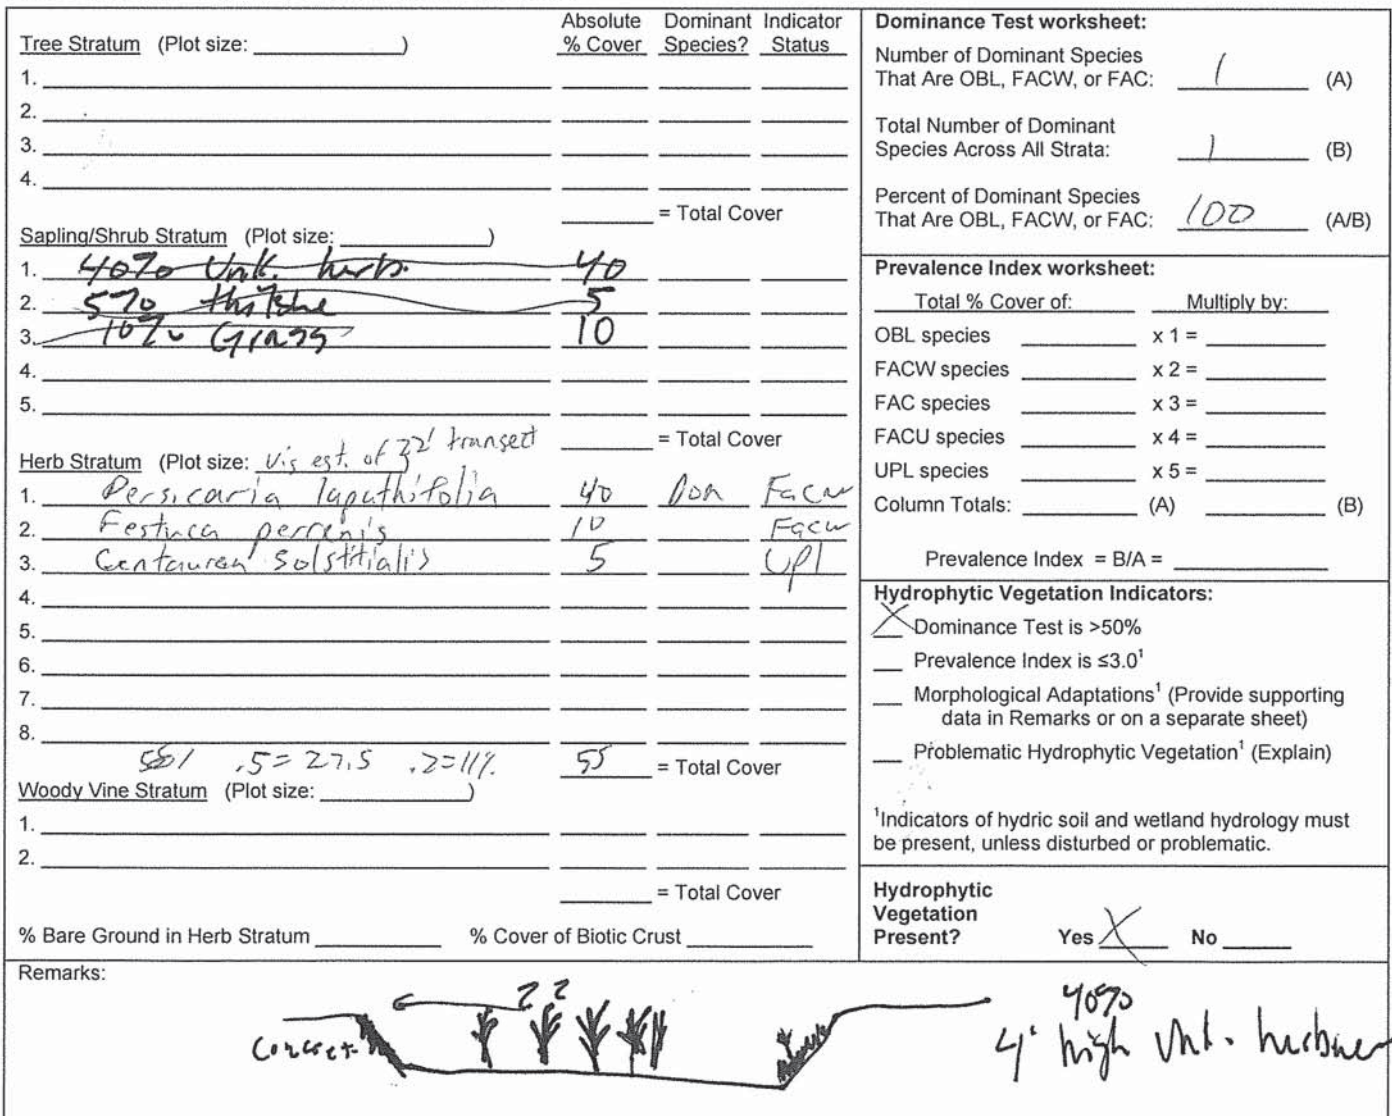 Absolute Dominant Indicator
Tree Stratum (Plot size: ____________) % Cover Species? Status
1.
2.
3.
4.
= Total Cover
Sapling/Shrub Stratum (Plot size: ____________)
1. 40% Unk. herb. 40
2. 5% 5
3. 10% Grass 10
4.
5.
= Total Cover
Herb Stratum (Plot size: Vis est. of 22' transect)
1. Persicaria lapathifolia 40 Dom Facw
2. Festuca perrenis 10 Facw
3. Centaurea Solstitialis 5 Upl
4.
5.
6.
7.
8.
.5=27.5 .2=11%. 55 = Total Cover
Woody Vine Stratum (Plot size: ____________)
1.
2.
= Total Cover
% Bare Ground in Herb Stratum ____________ % Cover of Biotic Crust ____________
Dominance Test worksheet:
Number of Dominant Species
That Are OBL, FACW, or FAC: 1 (A)
Total Number of Dominant
Species Across All Strata: 1 (B)
Percent of Dominant Species
That Are OBL, FACW, or FAC: 100 (A/B)
Prevalence Index worksheet:
Total % Cover of: Multiply by:
OBL species ____________ x 1 = ____________
FACW species ____________ x 2 = ____________
FAC species ____________ x 3 = ____________
FACU species ____________ x 4 = ____________
UPL species ____________ x 5 = ____________
Column Totals: ____________ (A) ____________ (B)
Prevalence Index = B/A = ____________
Hydrophytic Vegetation Indicators:
X Dominance Test is >50%
___ Prevalence Index is ≤3.0¹
___ Morphological Adaptations¹ (Provide supporting
data in Remarks or on a separate sheet)
___ Problematic Hydrophytic Vegetation¹ (Explain)
¹Indicators of hydric soil and wetland hydrology must
be present, unless disturbed or problematic.
Hydrophytic
Vegetation
Present? Yes X No ______
Remarks:
22
40%
4' high Unk.